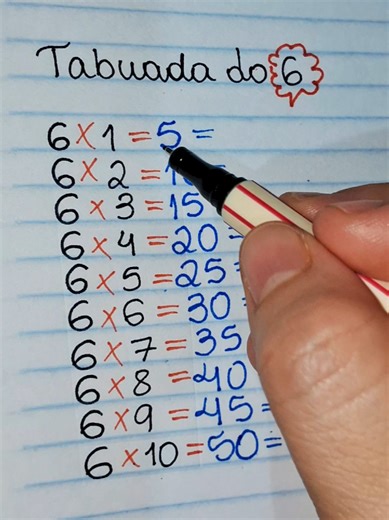 Tabuada do 6
6 x 1 = 5 =
6 x 2 =
6 x 3 = 15
6 x 4 = 20 =
6 x 5 = 25 =
6 x 6 = 30 =
6 x 7 = 35
6 x 8 = 40
6 x 9 = 45 =
6 x 10 = 50 =